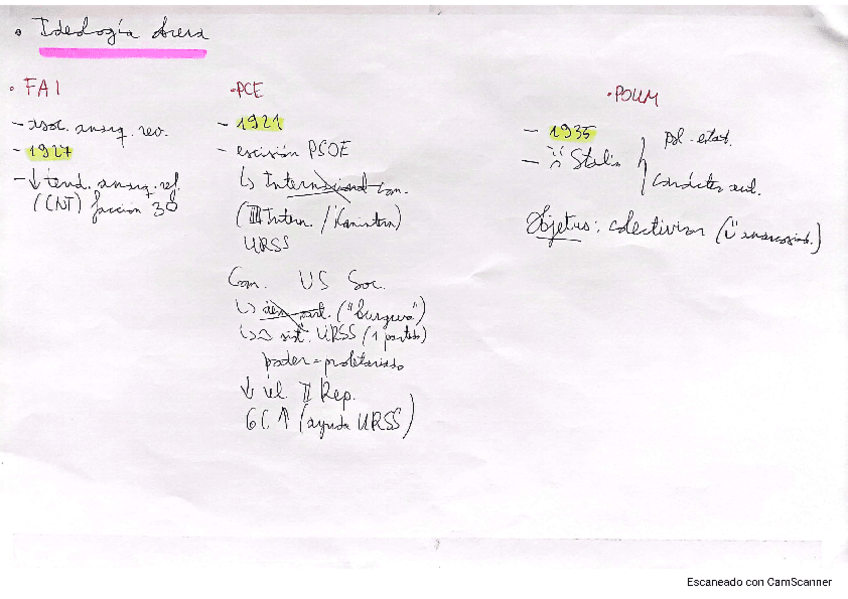 • Ideología
• FAI
- asoc. anarq. rev.
- 1927
- ↓ tend. anarq. ref.
(CNT) facción 30
• PCE
- 1921
- escisión PSOE
↳ Internacional Com.
(III Intern. / Komintern)
URSS
Com. VS Soc.
↳ sist. ("burgués")
↳ sist. URSS (1 partido)
poder = proletariado
↓ el. II Rep.
GC ↑ (ayuda URSS)
• POUM
- 1935
- Stalin
pol. estat.
carácter
Objetivo: colectivizar (anarcosind.)
Escaneado con CamScanner